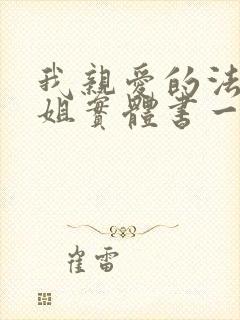 我親愛的法
姐實體書一
崔雷